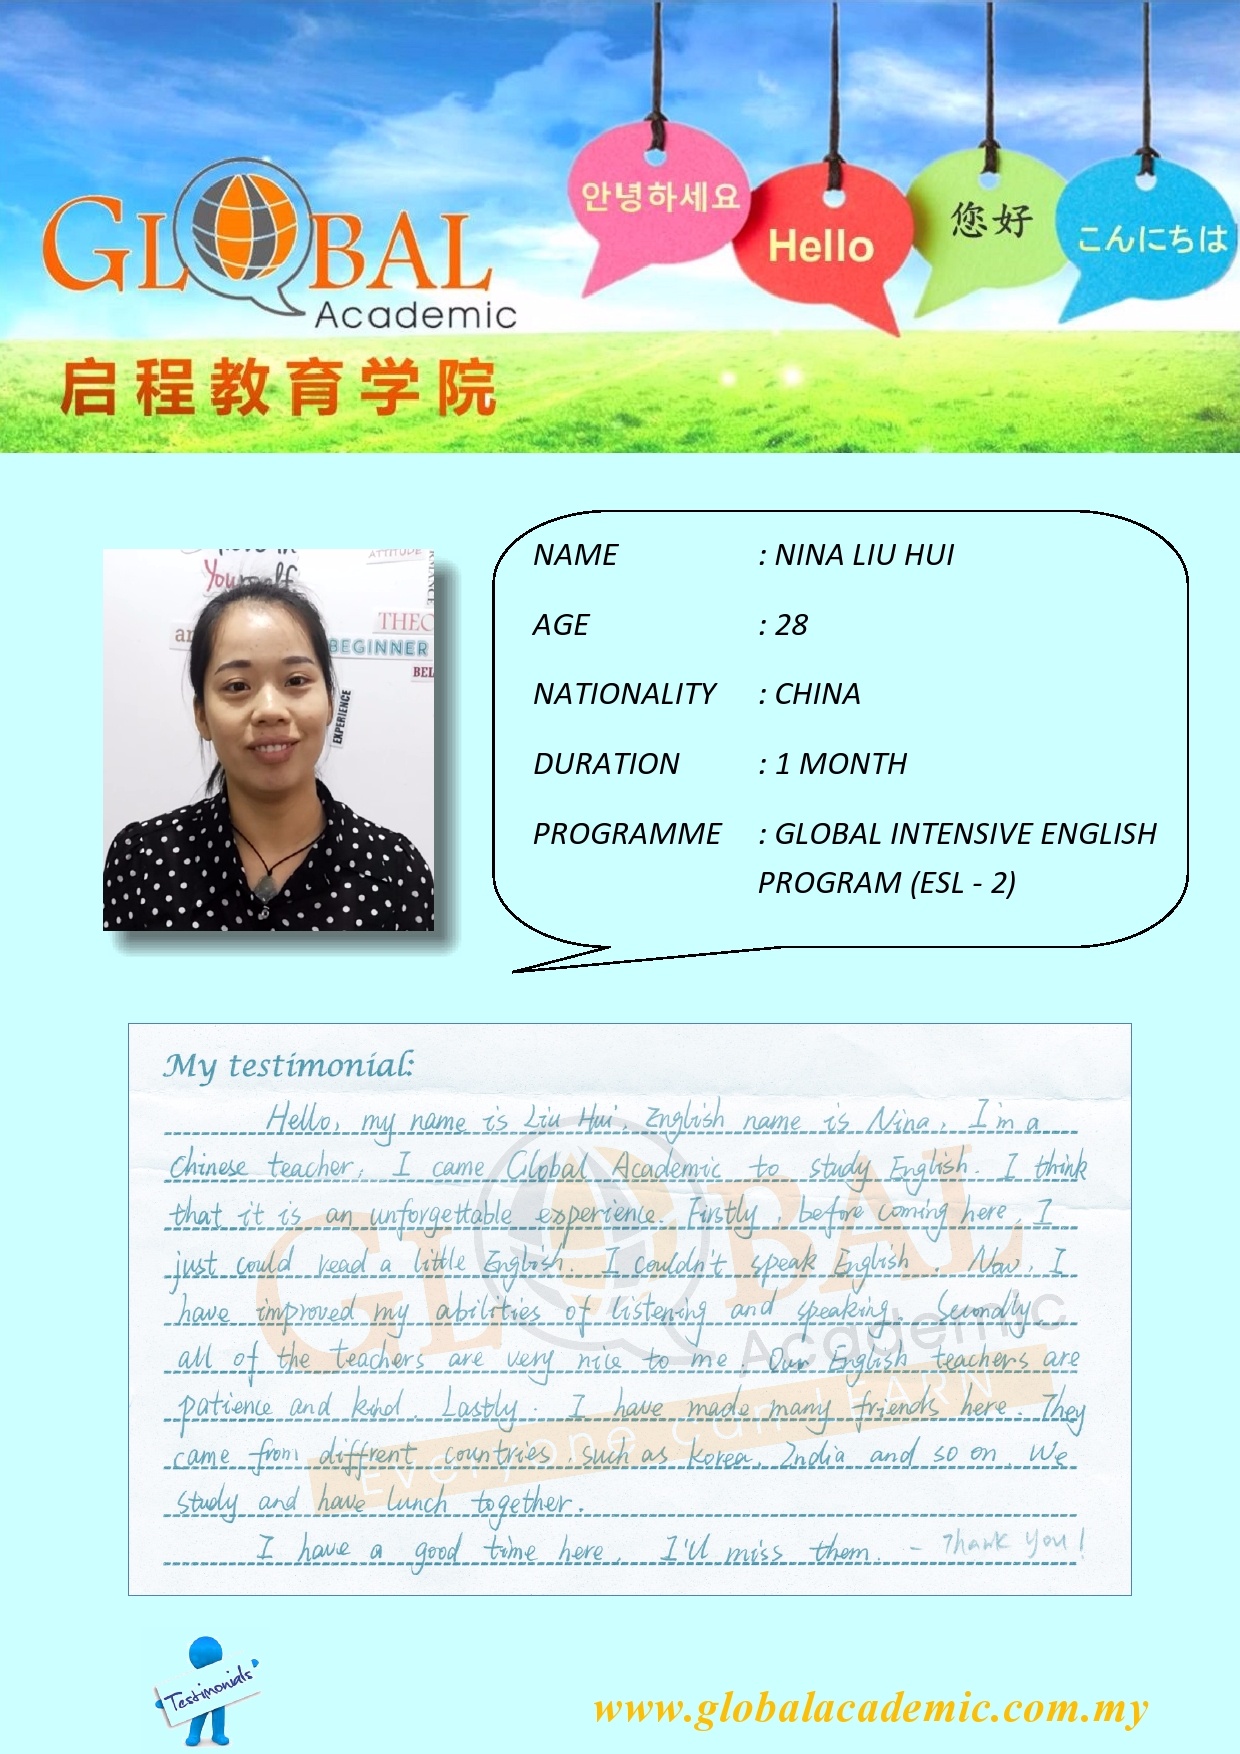 GLOBAL
Academic
启程教育学院
안녕하세요
Hello
您好
こんにちは
Yourself
ATTITUDE
THEO
BEGINNER
BEL
EXPERIENCE
NAME : NINA LIU HUI
AGE : 28
NATIONALITY : CHINA
DURATION : 1 MONTH
PROGRAMME : GLOBAL INTENSIVE ENGLISH
PROGRAM (ESL - 2)
My testimonial:
Hello, my name is Liu Hui, English name is Nina, I'm a
Chinese teacher, I came Global Academic to study English. I think
that it is an unforgettable experience. Firstly, before coming here, I
just could read a little English. I couldn't speak English. Now, I
have improved my abilities of listening and speaking. Secondly,
all of the teachers are very nice to me. Our English teachers are
patience and kind. Lastly. I have made many friends here. They
came from diffrent countries, such as Korea, India and so on. We
study and have lunch together.
I have a good time here, I'll miss them. - Thank you!
GLOBAL
Academic
Everyone can LEARN
Testimonials
www.globalacademic.com.my